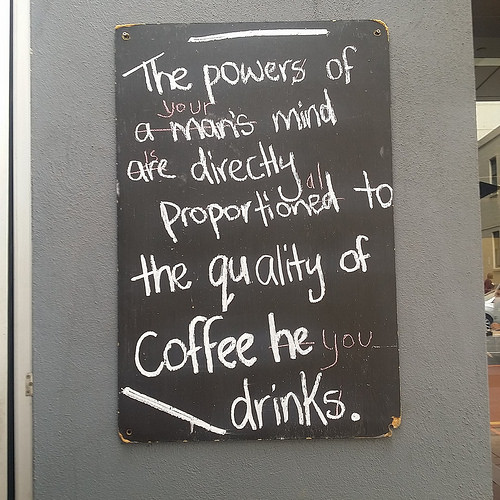 The powers of
your
a man's mind
is
are directly
al
proportioned to
the quality of
Coffee he you
drinks.